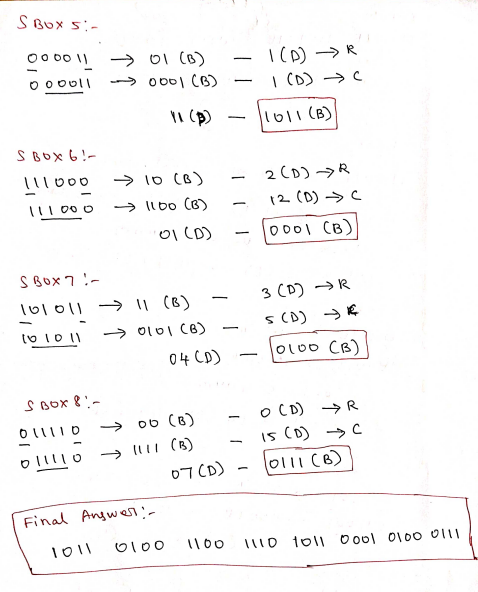 S BOX 5:-
000011 → 01 (B) — 1(D) → R
000011 → 0001 (B) — 1 (D) → C
11 (D) — 1011 (B)
S BOX 6:-
111000 → 10 (B) — 2(D) → R
111000 → 1100 (B) — 12 (D) → C
01 (D) — 0001 (B)
S BOX 7:-
101011 → 11 (B) — 3 (D) → R
101011 → 0101 (B) — 5 (D) → C
04 (D) — 0100 (B)
S BOX 8:-
011110 → 00 (B) — 0 (D) → R
011110 → 1111 (B) — 15 (D) → C
07 (D) — 0111 (B)
Final Answer:-
1011 0100 1100 1110 1011 0001 0100 0111